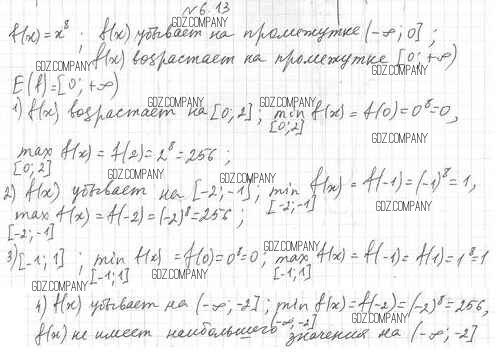 № 6.13
GDZ.COMPANY
f(x)=x⁸ ; f(x) убывает на промежутке (-∞; 0] ;
GDZ.COMPANY
f(x) возрастает на промежутке [0; +∞)
GDZ.COMPANY GDZ.COMPANY
E(f)=[0; +∞)
GDZ.COMPANY GDZ.COMPANY
1) f(x) возрастает на [0; 2] ; min f(x) = f(0)=0⁸=0,
[0;2]
GDZ.COMPANY
max f(x) = f(2)=2⁸=256 ;
[0; 2]
GDZ.COMPANY GDZ.COMPANY
2) f(x) убывает на [-2; -1] ; min f(x) = f(-1)=(-1)⁸=1,
[-2; -1]
max f(x) = f(-2)=(-2)⁸=256 ;
GDZ.COMPANY GDZ.COMPANY
[-2; -1]
GDZ.COMPANY
3) [-1; 1] ; min f(x) = f(0)=0⁸=0 ; max f(x) = f(-1)=f(1)=1⁸=1
[-1; 1] [-1; 1]
GDZ.COMPANY GDZ.COMPANY
GDZ.COMPANY
4) f(x) убывает на (-∞; -2] ; min f(x) = f(-2)=(-2)⁸=256,
(-∞; -2]
GDZ.COMPANY GDZ.COMPANY
f(x) не имеет наибольшего значения на (-∞; -2]